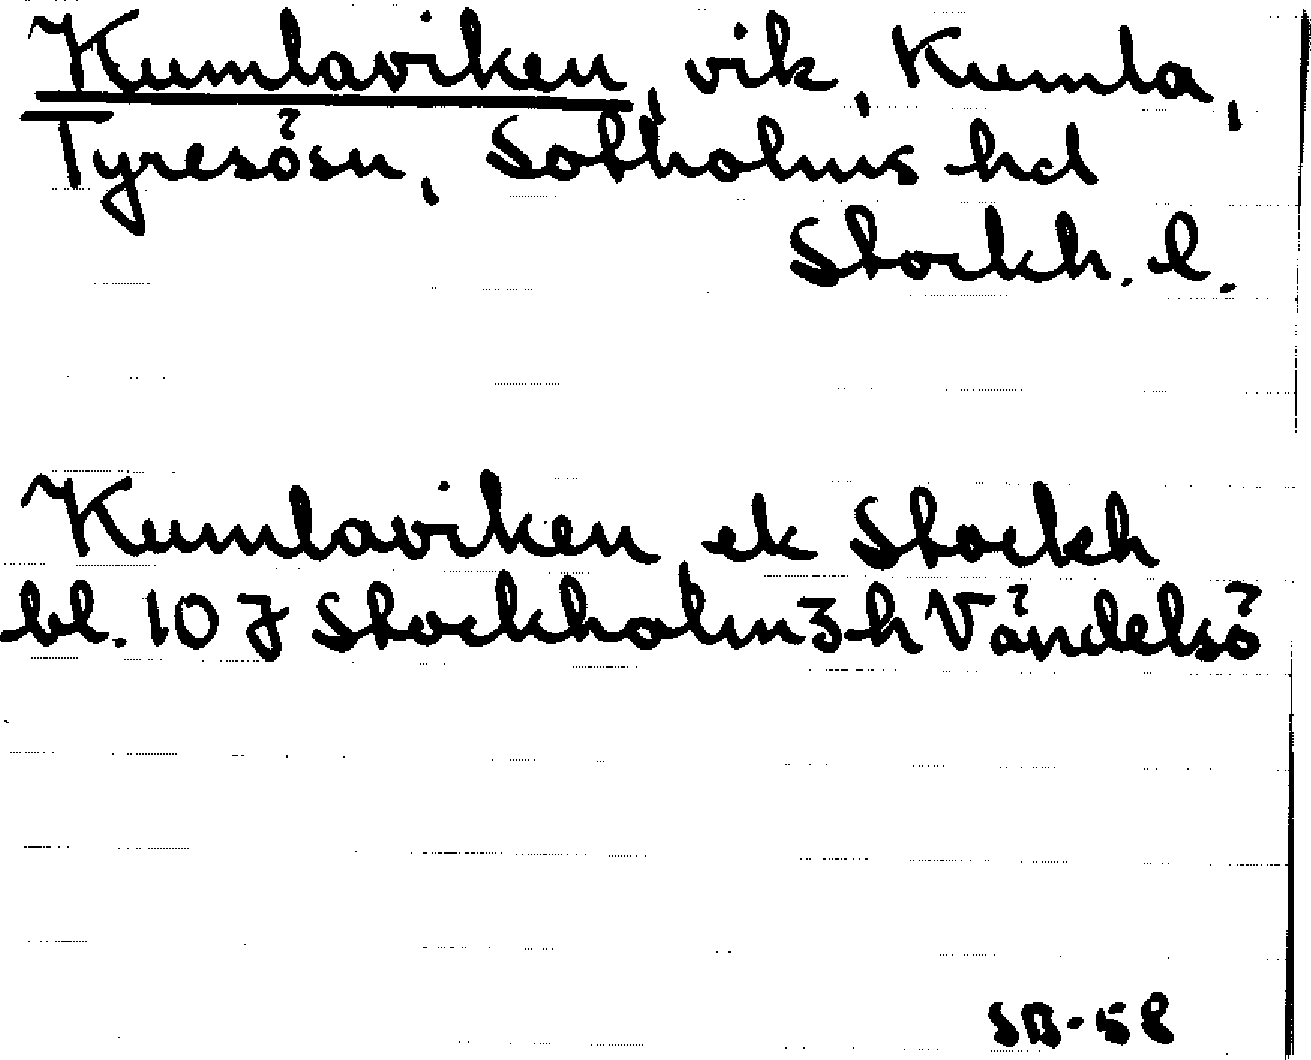 Kumlaviken, vik, Kumla,
Tyresö sn, Sotholms hd
Stockh. l.
Kumlaviken ek Stockh
bl. 10 J Stockholm 3 h Vändelsö
SB-58